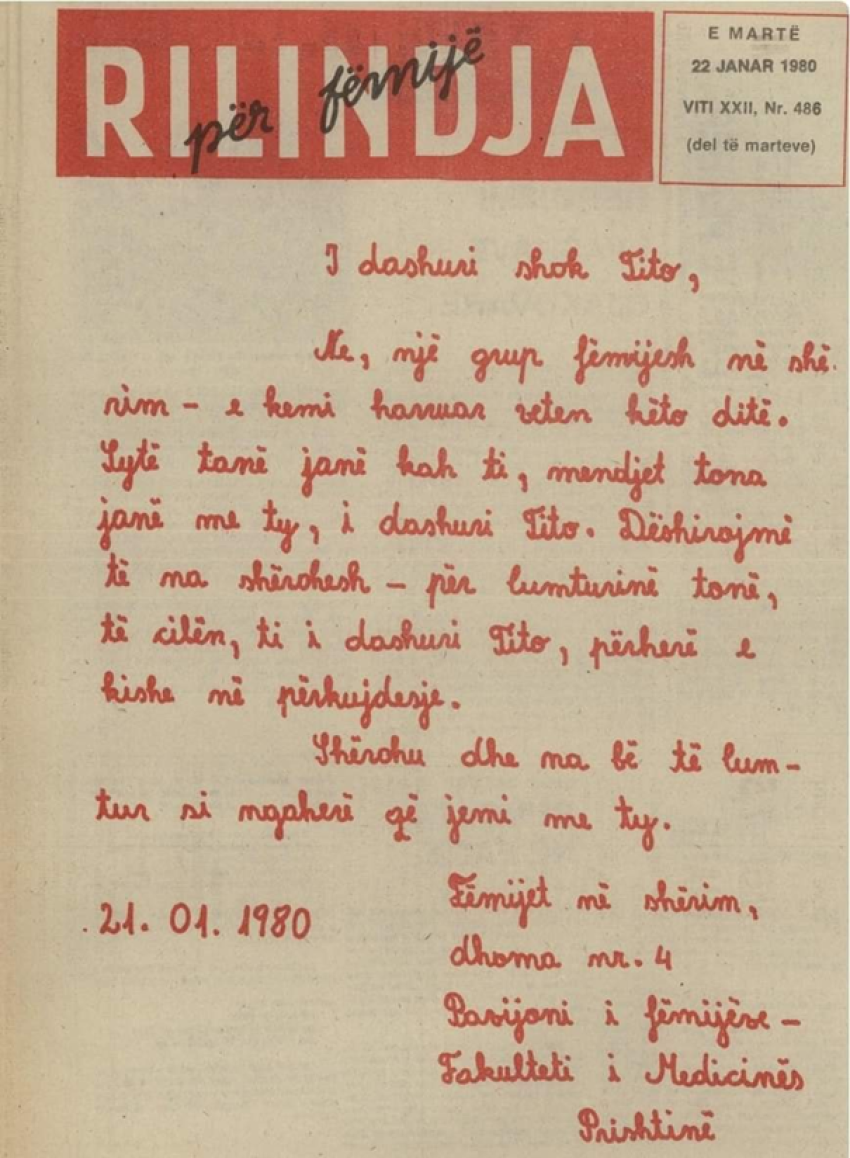 RILINDJA
për fëmijë
E MARTË
22 JANAR 1980
VITI XXII, Nr. 486
(del të marteve)
I dashuri shok Tito,
Ne, një grup fëmijesh në shë-
rim - e kemi harruar veten këto ditë.
Sytë tanë janë kah ti, mendjet tona
janë me ty, i dashuri Tito. Dëshirojmë
të na shërohesh - për lumturinë tonë,
të cilën, ti i dashuri Tito, përherë e
kishe në përkujdesje.
Shërohu dhe na bë të lum-
tur si ngaherë që jemi me ty.
21. 01. 1980
Fëmijet në shërim,
dhoma nr. 4
Pavijoni i fëmijëve -
Fakulteti i Medicinës
Prishtinë